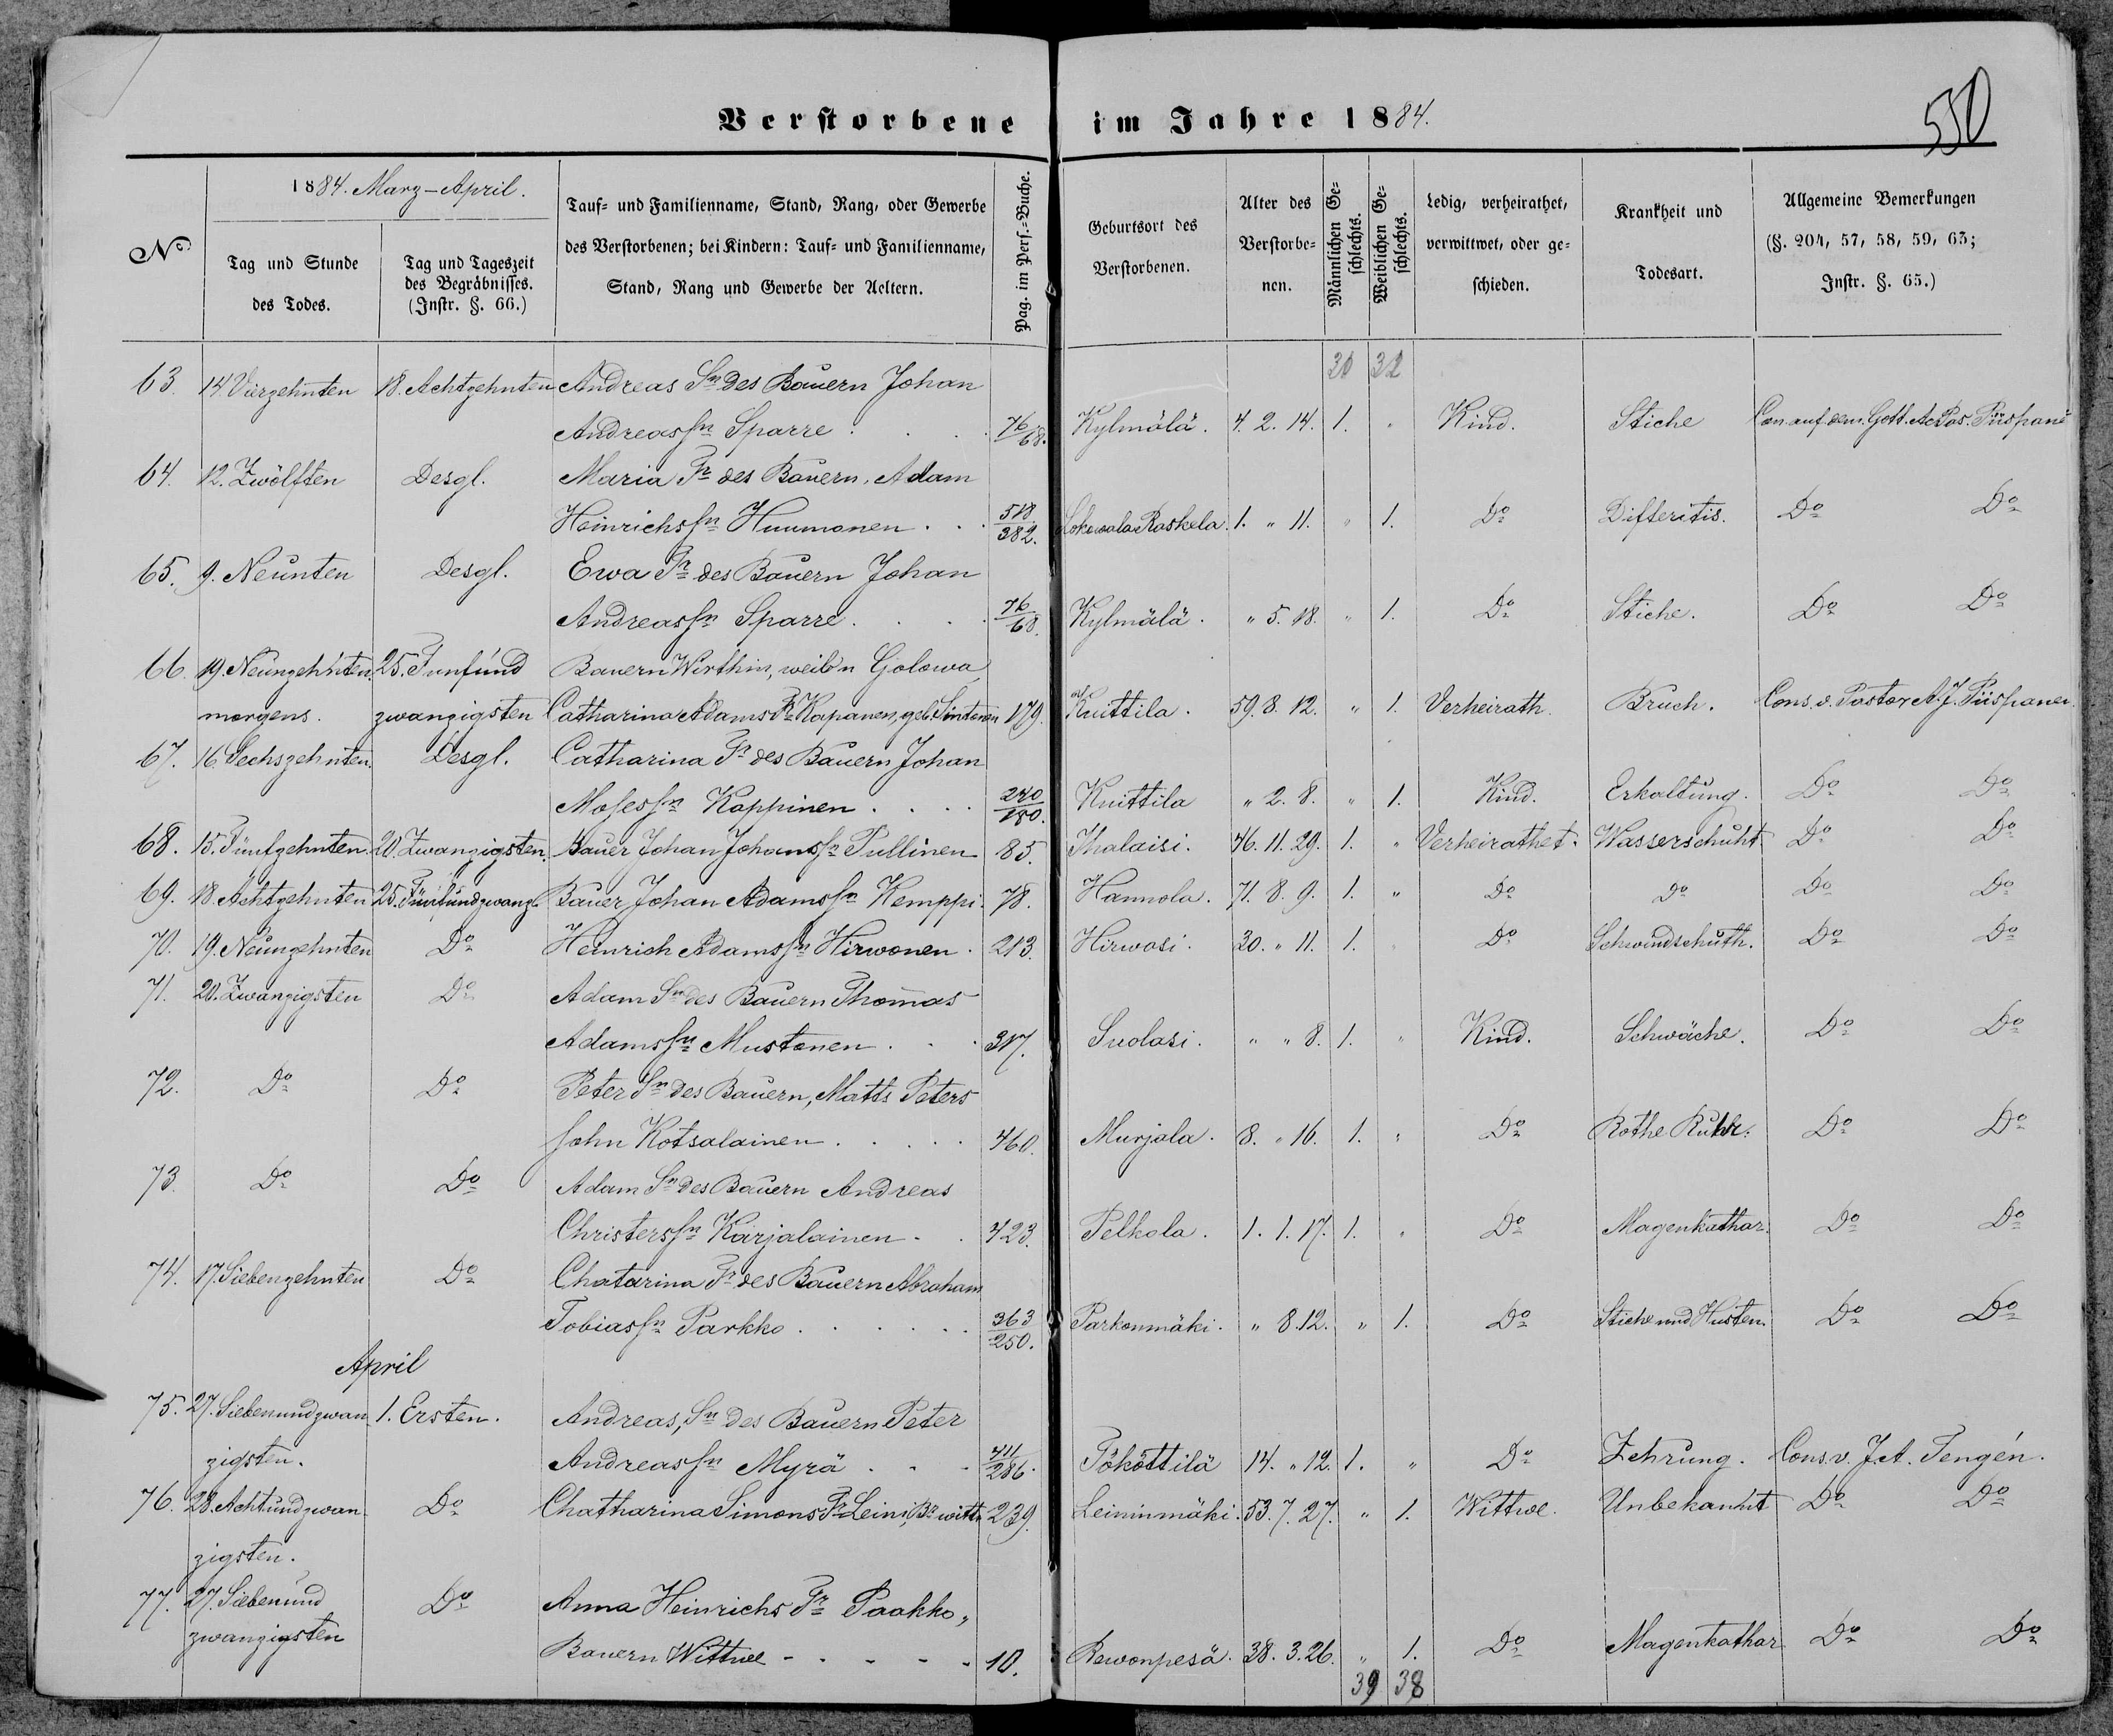 Verstorbene im Jahre 1884.
550
1884. Marz-April.
No
Tag und Stunde des Todes.
Tag und Tageszeit des Begräbnisses. (Instr. §. 66.)
Tauf- und Familienname, Stand, Rang, oder Gewerbe des Verstorbenen; bei Kindern: Tauf- und Familienname, Stand, Rang und Gewerbe der Aeltern.
Pag. im Pers.-Buche.
Geburtsort des Verstorbenen.
Alter des Verstorbenen.
Männlichen Geschlechts.
Weiblichen Geschlechts.
Ledig, verheirathet, verwittwet, oder geschieden.
Krankheit und Todesart.
Allgemeine Bemerkungen (§. 204, 57, 58, 59, 63; Instr. §. 65.)
31 32
63. 14. Vierzehnten 18. Achtzehnten Andreas Sn des Bauern Johan
Andreassn Sparre . . . 76/68. Kylmälä. 4. 2. 14. 1. " Kind. Stiche Con. auf dem. Gott. Ac. Pas. Piispane
64. 12. Zwölften Desgl. Maria Tr des Bauern, Adam
Heinrichssn Huumonen . . 518/382. Sokowala Raskela. 1. " 11. " 1. Do Difteritis. Do Do
65. 9. Neunten Desgl. Ewa Tr des Bauern Johan
Andreassn Sparre. . . . 76/68. Kylmälä. " 5. 18. " 1. Do Stiche. Do Do
66. 19. Neunzehnten. 25. Funfund Bauern Wirthin, weib'n Golowa
morgens. zwanzigsten Catharina Adams Tr Kapanen, geb. Sintonen 179. Knittila. 59. 8. 12. " 1. Verheirath. Bruch. Cons. v. Pastor A. J. Piispanen.
67. 16. Sechszehnten. Desgl. Catharina Tr des Bauern Johan
Mosessn Koppinen . . . . 240/180. Knittila " 2. 8. " 1. Kind. Erkaltung. Do Do
68. 15. Fünfzehnten. 20. Zwanzigsten. Bauer Johan Johanssn Pullinen 85. Ihalaisi. 46. 11. 29. 1. " Verheirathet. Wasserschuht Do Do
69. 18. Achtzehnten 25. Fünfundzwanz. Bauer Johan Adamssn Kemppi. 78. Hannola. 71. 8. 9. 1. " Do Do Do Do
70. 19. Neunzehnten Do Heinrich Adamssn Hirwonen. 213. Hirwosi. 30. " 11. 1. " Do Schwindschuth. Do Do
71. 20. Zwanzigsten Do Adam Sn des Bauern Thomas
Adamssn Mustonen . . . 317. Suolasi. " " 8. 1. " Kind. Schwäche. Do Do
72. Do Do Peter Sn des Bauern, Matts Peters
sohn Kotsalainen . . . . . 460. Murjala. 8. " 16. 1. " Do Rothe Ruhr. Do Do
73. Do Do Adam Sn des Bauern Andreas
Christerssn Karjalainen . . 423. Pelkola. 1. 1. 17. 1. " Do Magenkathar. Do Do
74. 17. Siebenzehnten Do Chatarina Tr des Bauern Abraham
Tobiassn Parkko . . . . . . 363/250. Parkonmäki. " 8. 12. " 1. Do Stiche und Husten. Do Do
April
75. 27. Siebenundzwan 1. Ersten. Andreas, Sn des Bauern Peter
zigsten. Andreassn Myrä . . . 411/286. Pököttilä 14. " 12. 1. " Do Zehrung. Cons. v. J. A. Tengén.
76. 28. Achtundzwan Do Chatharina Simons Tr Leini, Br wittw 239. Leininmäki. 53. 7. 27. " 1. Wittwe. Unbekannt Do Do
zigsten.
77. 27. Siebenund Do Anna Heinrichs Tr Paakko,
zwanzigsten Bauern Wittwe - - - - - 10. Rewonpesä. 38. 3. 26. " 1. Do Magenkathar Do Do
39 38